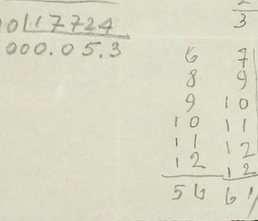 3
0117724
000.05.3
6 7
8 9
9 10
10 11
11 12
12 12
56 61